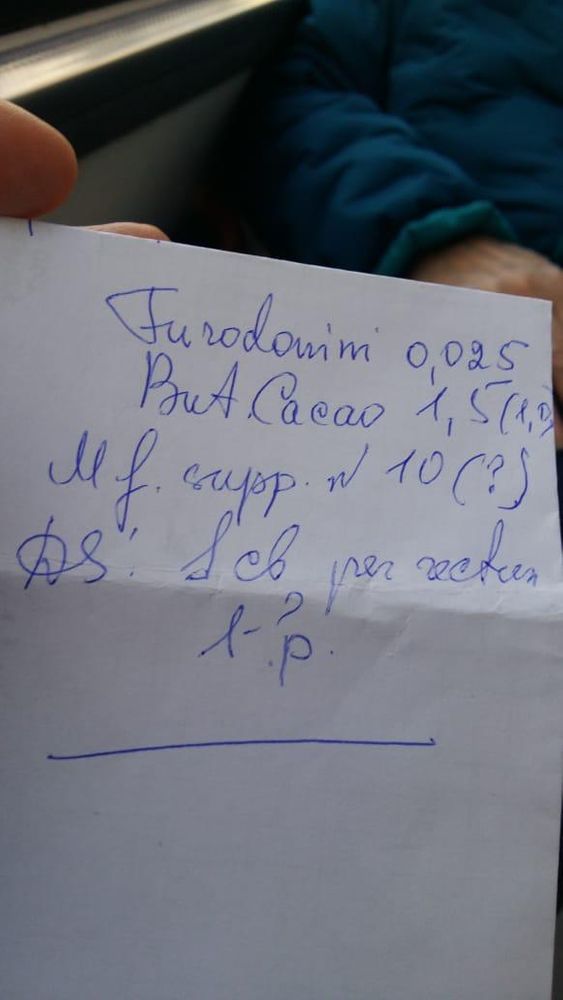 Furodonini 0,025
But. Cacao 1,5 (1,0)
M f. supp. N 10 (?)
DS: 1 св per rectum
1-? р.